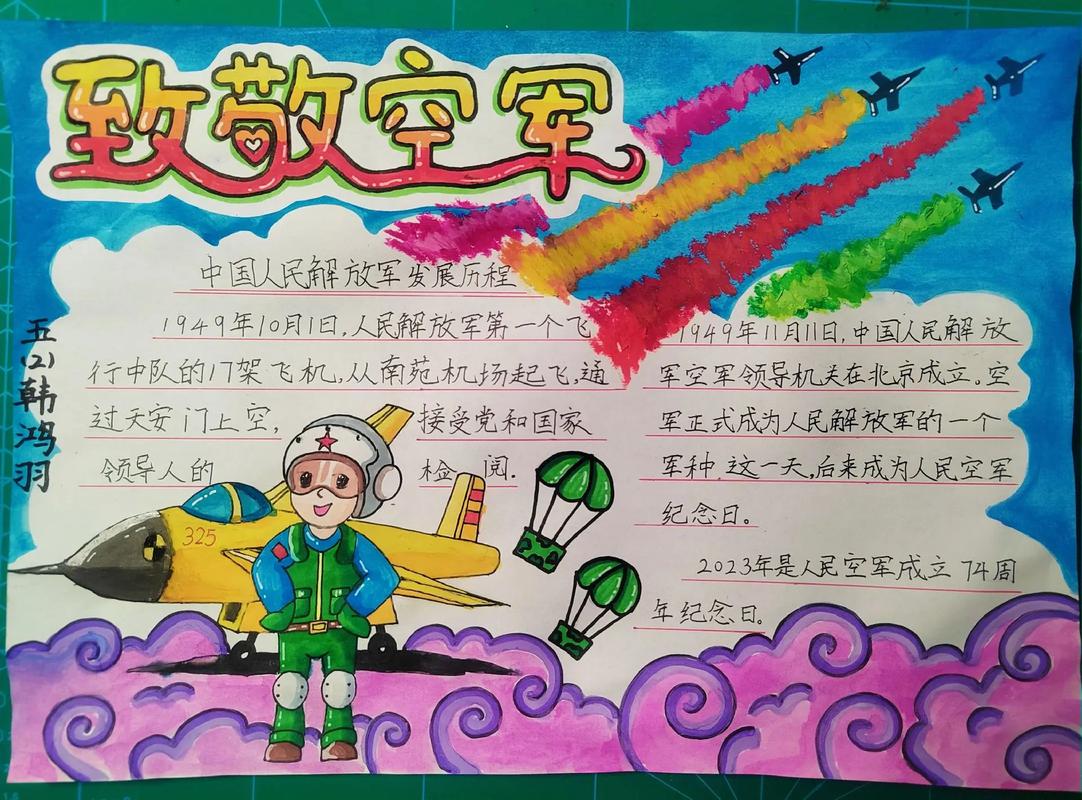 致敬空军
中国人民解放军发展历程
1949年10月1日,人民解放军第一个飞
行中队的17架飞机,从南苑机场起飞,通
过天安门上空,接受党和国家
领导人的检阅.
1949年11月11日,中国人民解放
军空军领导机关在北京成立。空
军正式成为人民解放军的一个
军种.这一天,后来成为人民空军
纪念日。
2023年是人民空军成立74周
年纪念日。
五(2)韩鸿羽
325